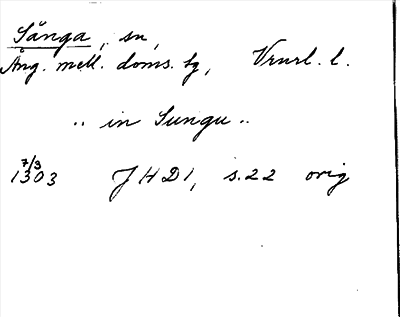 Sånga, sn,
Ång. mell. doms. sg, Vrurl. l.
.. in Sungu ..
7/9
1303 JHD1, s.22 orig